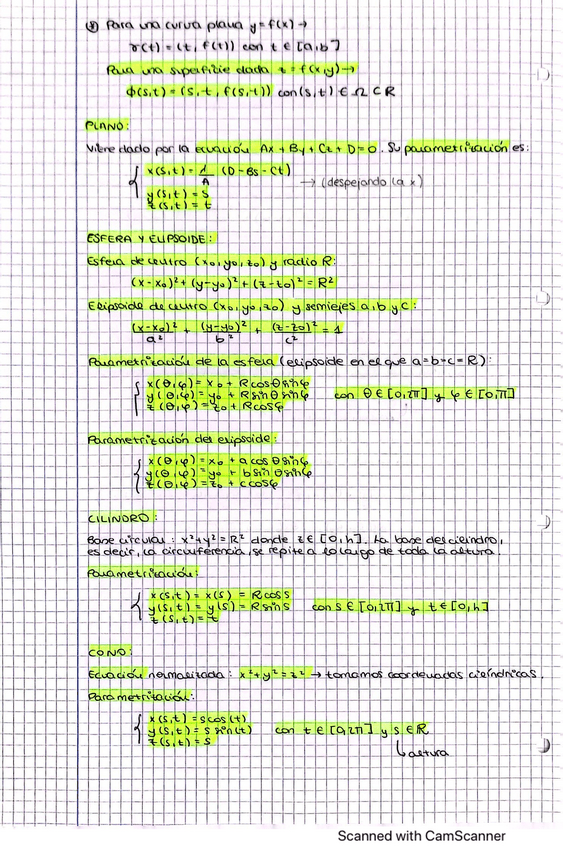 ⊛ Para una curva plana y=f(x) →
γ(t) = (t, f(t)) con t ∈ [a,b]
Para una superficie dada z = f(x,y) →
ϕ(s,t) = (s, t, f(s,t)) con (s,t) ∈ Ω ⊂ R
PLANO:
Viene dado por la ecuación Ax + By + Cz + D = 0. Su parametrización es:
x(s,t) = 1/A (D - Bs - Ct)
→ (despejando la x)
y(s,t) = s
z(s,t) = t
ESFERA Y ELIPSOIDE:
Esfera de centro (x₀, y₀, z₀) y radio R:
(x-x₀)² + (y-y₀)² + (z-z₀)² = R²
Elipsoide de centro (x₀, y₀, z₀) y semiejes a, b y c:
(x-x₀)²/a² + (y-y₀)²/b² + (z-z₀)²/c² = 1
Parametrización de la esfera (elipsoide en el que a=b=c=R):
x(θ,φ) = x₀ + R cosθ sinφ
y(θ,φ) = y₀ + R sinθ sinφ con θ ∈ [0,2π] y φ ∈ [0,π]
z(θ,φ) = z₀ + R cosφ
Parametrización del elipsoide:
x(θ,φ) = x₀ + a cosθ sinφ
y(θ,φ) = y₀ + b sinθ sinφ
z(θ,φ) = z₀ + c cosφ
CILINDRO:
Base circular: x² + y² = R² donde z ∈ [0,h]. La base del cilindro,
es decir, la circunferencia, se repite a lo largo de toda la altura.
Parametrización:
x(s,t) = x(s) = R cos s
y(s,t) = y(s) = R sin s con s ∈ [0,2π] y t ∈ [0,h]
z(s,t) = t
CONO:
Ecuación normalizada: x² + y² = z² → tomamos coordenadas cilíndricas.
Parametrización:
x(s,t) = s cos(t)
y(s,t) = s sin(t) con t ∈ [0,2π] y s ∈ R
z(s,t) = s
↳ altura
Scanned with CamScanner